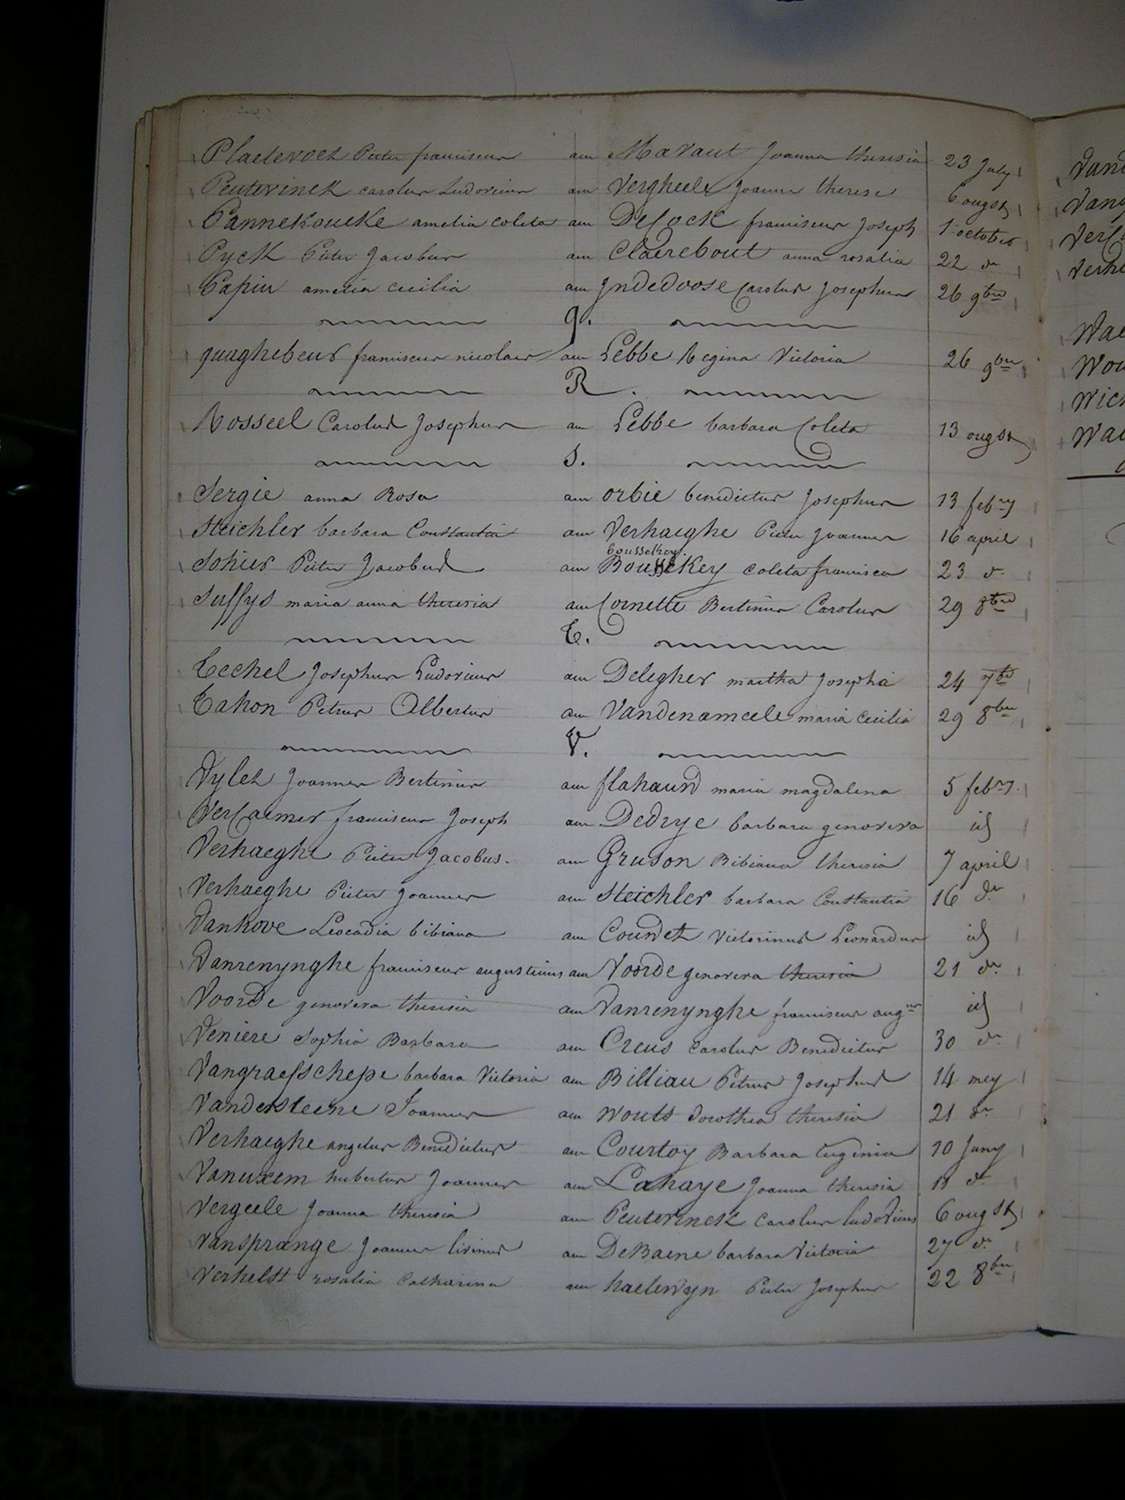 Plaetevoet Pieter franciscus am Mavaut Joanna theresia 23 July
Peuterinck carolus Ludovicus am Vergheele Joanna therese 6 augst
Pannekoucke amelia coleta am DeCock franciscus Joseph 1 october
Pyck Pieter Jacobus am Clairebout anna rosalia 22 do
Papin amelia cecilia am Yndedoose Carolus Josephus 26 9bre
q.
quaghebeur franciscus nicolaus am Lebbe Regina Victoria 26 9bre
R.
Rosseel Carolus Josephus am Lebbe barbara Coleta 13 ougst
S.
Sergie anna Rosa am orbie benedictus Josephus 13 febry
Steichler barbara Constantia am Verhaeghe Pieter Joannes 16 april
bousselrey
Sohier Pieter Jacobus am Boussekey coleta francisca 23 do
Suffys maria anna theresia am Cornette Bertinus Carolus 29 8bre
T.
Techel Josephus Ludovicus am Delegher martha Josepha 24 7bre
Tahon Petrus Albertus am Vandenameele maria cecilia 29 8bre
V.
Vylet Joannes Bertinus am flahaund maria magdalena 5 febry
Vercaemer franciscus Joseph am Dedrye barbara genovera id
Verhaeghe Pieter Jacobus am Gruson Bibiana theresia 7 april
Verhaeghe Pieter Joannes am Steichler barbara Constantia 16 do
Vankove Leocadia bibiana am Coudet Victorinus Leonardus id
Vanrenynghe franciscus augustinus am Voorde genovera theresia 21 do
Voorde genovera theresia am Vanrenynghe franciscus augnus id
Veniere Sophia Barbara am Creus carolus Benedictus 30 do
Vangraefschepe barbara Victoria am Billiau Petrus Josephus 14 mey
Vandersteene Joannes am Wouts dorothea theresia 21 do
Verhaeghe angelus Benedictus am Courtoy Barbara Eugenia 10 Juny
Vanuxem hubertus Joannes am Lahaye Joanna theresia 11 do
Vergeele Joanna theresia am Peuterinck Carolus ludovicus 6 ougst
Vansprange Joannes livinus am DeBaene barbara Victoria 27 do
Verhelst rosalia Catharina am haelewyn Pieter Josephus 22 8bre